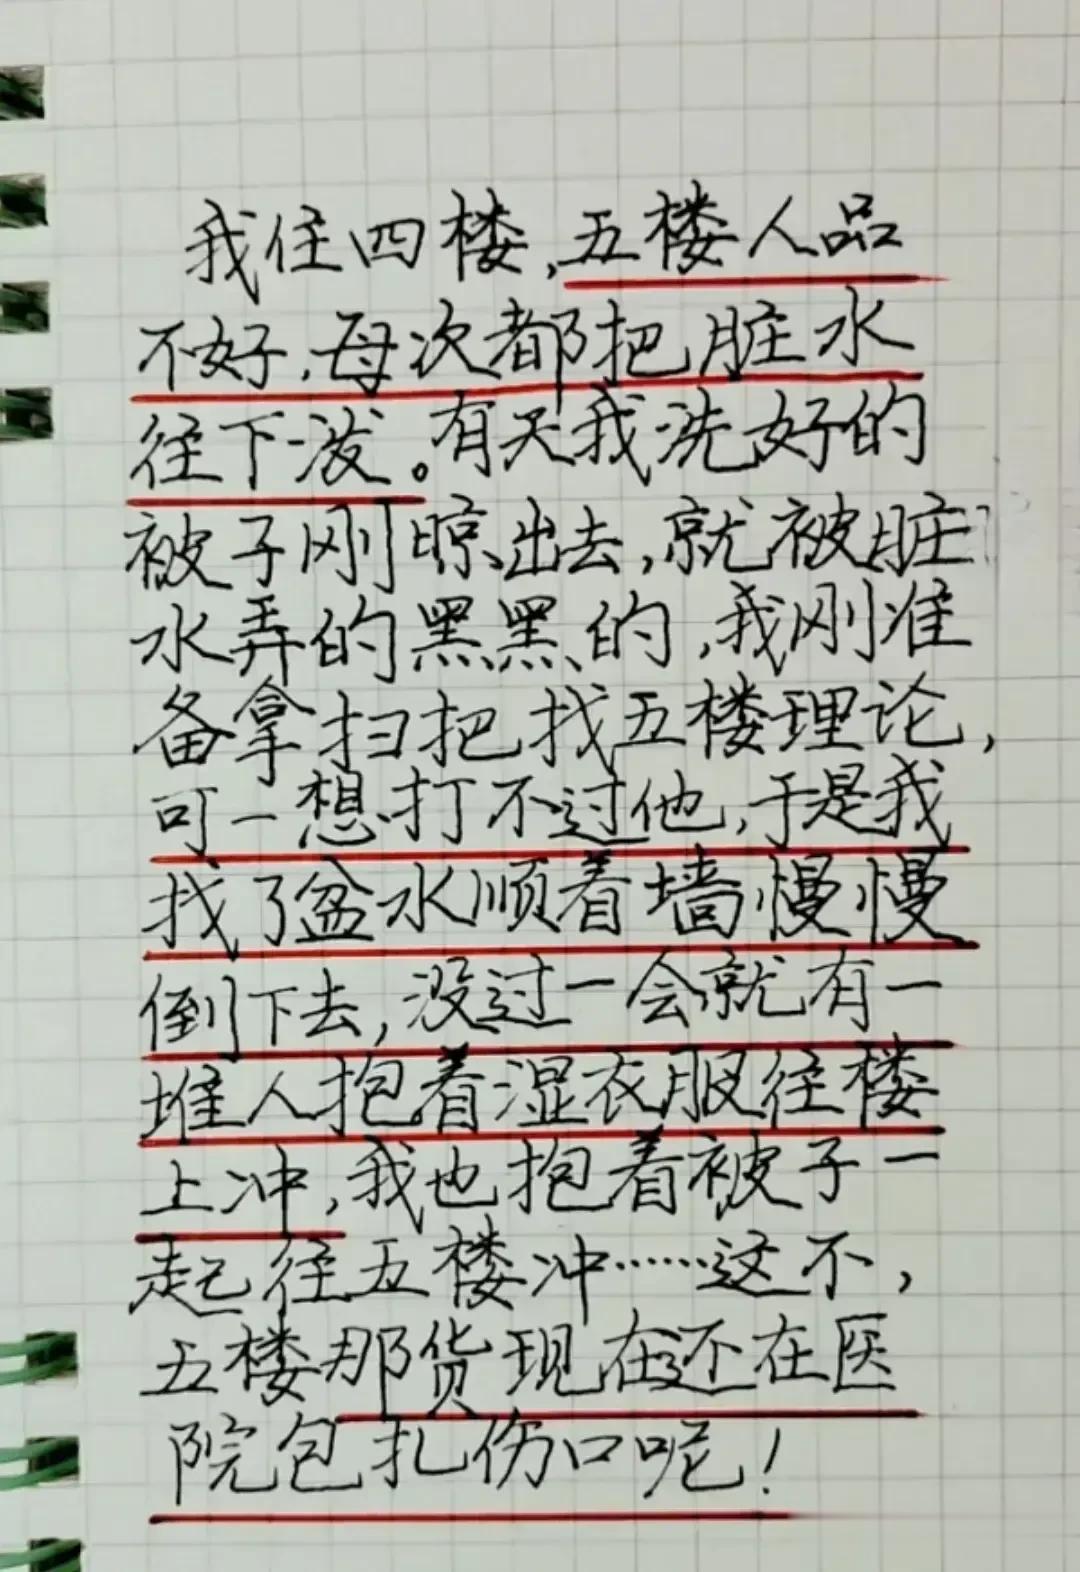 我住四楼,五楼人品
不好,每次都把脏水
往下泼。有天我洗好的
被子刚晾出去,就被脏
水弄的黑黑的,我刚准
备拿扫把找五楼理论,
可一想打不过他,于是我
找了盆水顺着墙慢慢
倒下去,没过一会就有一
堆人抱着湿衣服往楼
上冲,我也抱着被子一
起往五楼冲……这不,
五楼那货现在还在医
院包扎伤口呢!